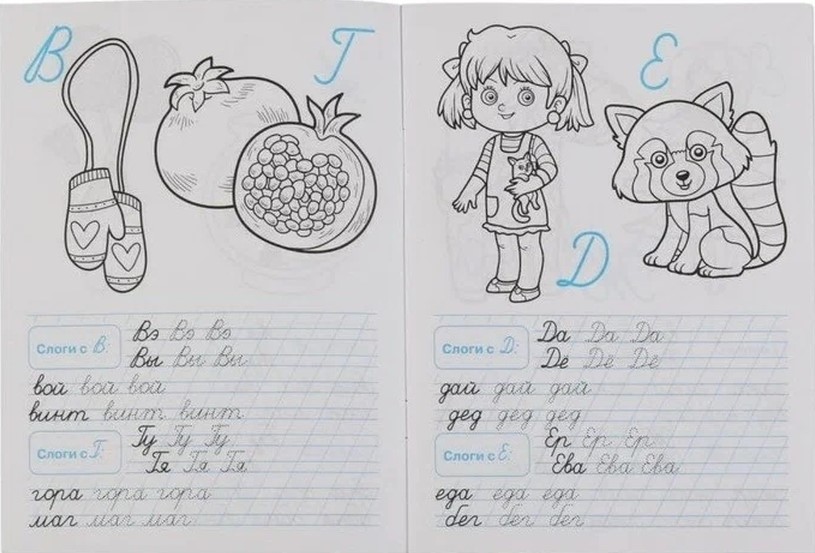 В Г
Слоги с В:
Вэ Вэ Вэ
Вы Вы Вы
вой вой вой
винт винт винт
Слоги с Г:
Гу Гу Гу
Гя Гя Гя
гора гора гора
маг маг маг
Е
Д
Слоги с Д:
Да Да Да
Де Де Де
дай дай дай
дед дед дед
Слоги с Е:
Ер Ер Ер
Ева Ева Ева
еда еда еда
бег бег бег